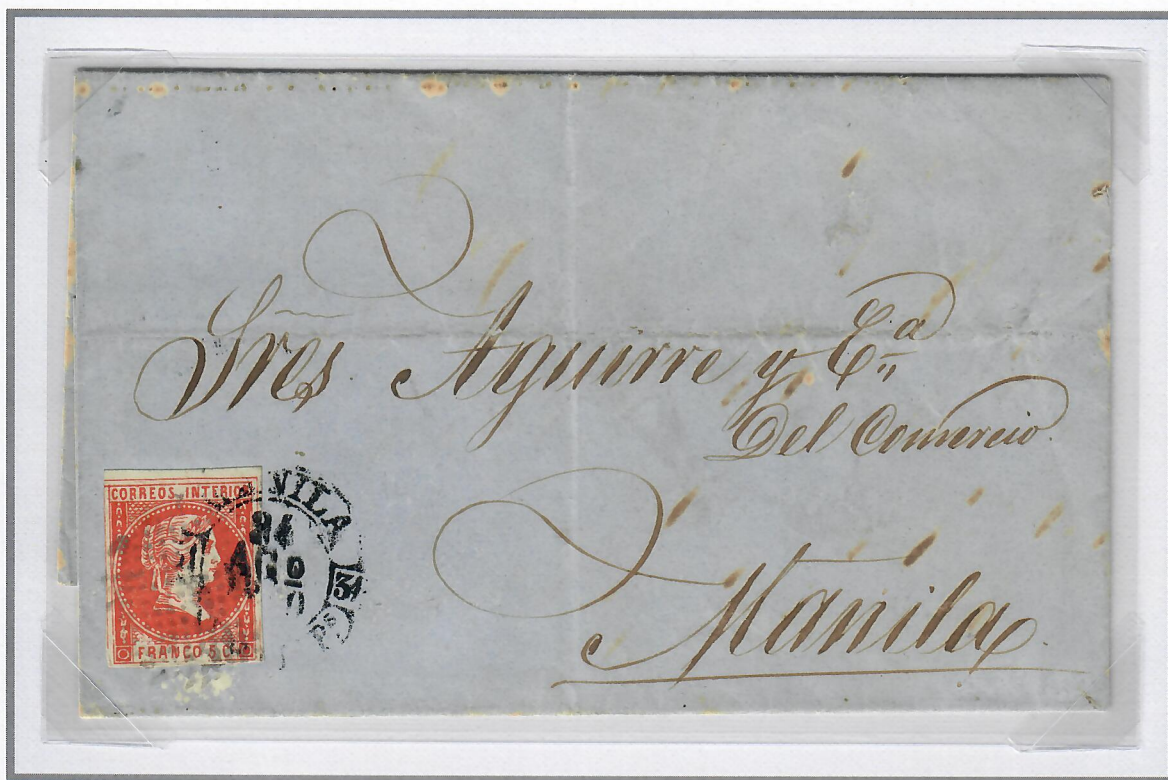 Sres Aguirre y Cª
Del Comercio.
Manila.
CORREOS INTERIO
FRANCO 5
MANILA
24
AGO